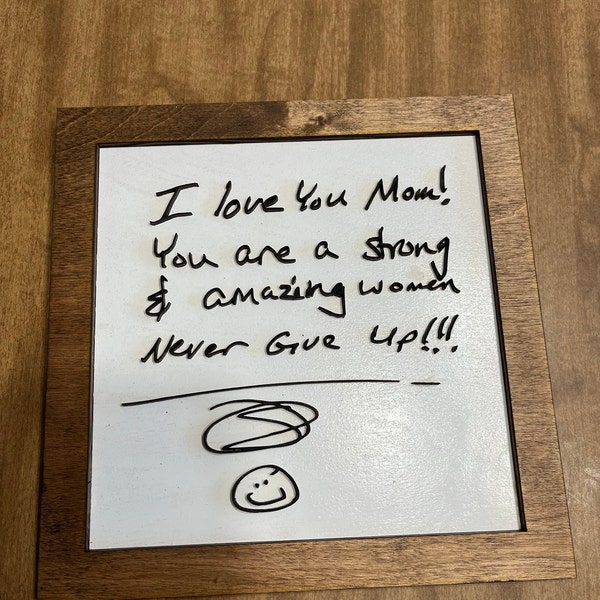 I love You Mom!
You are a strong
& amazing women
Never Give up!!!